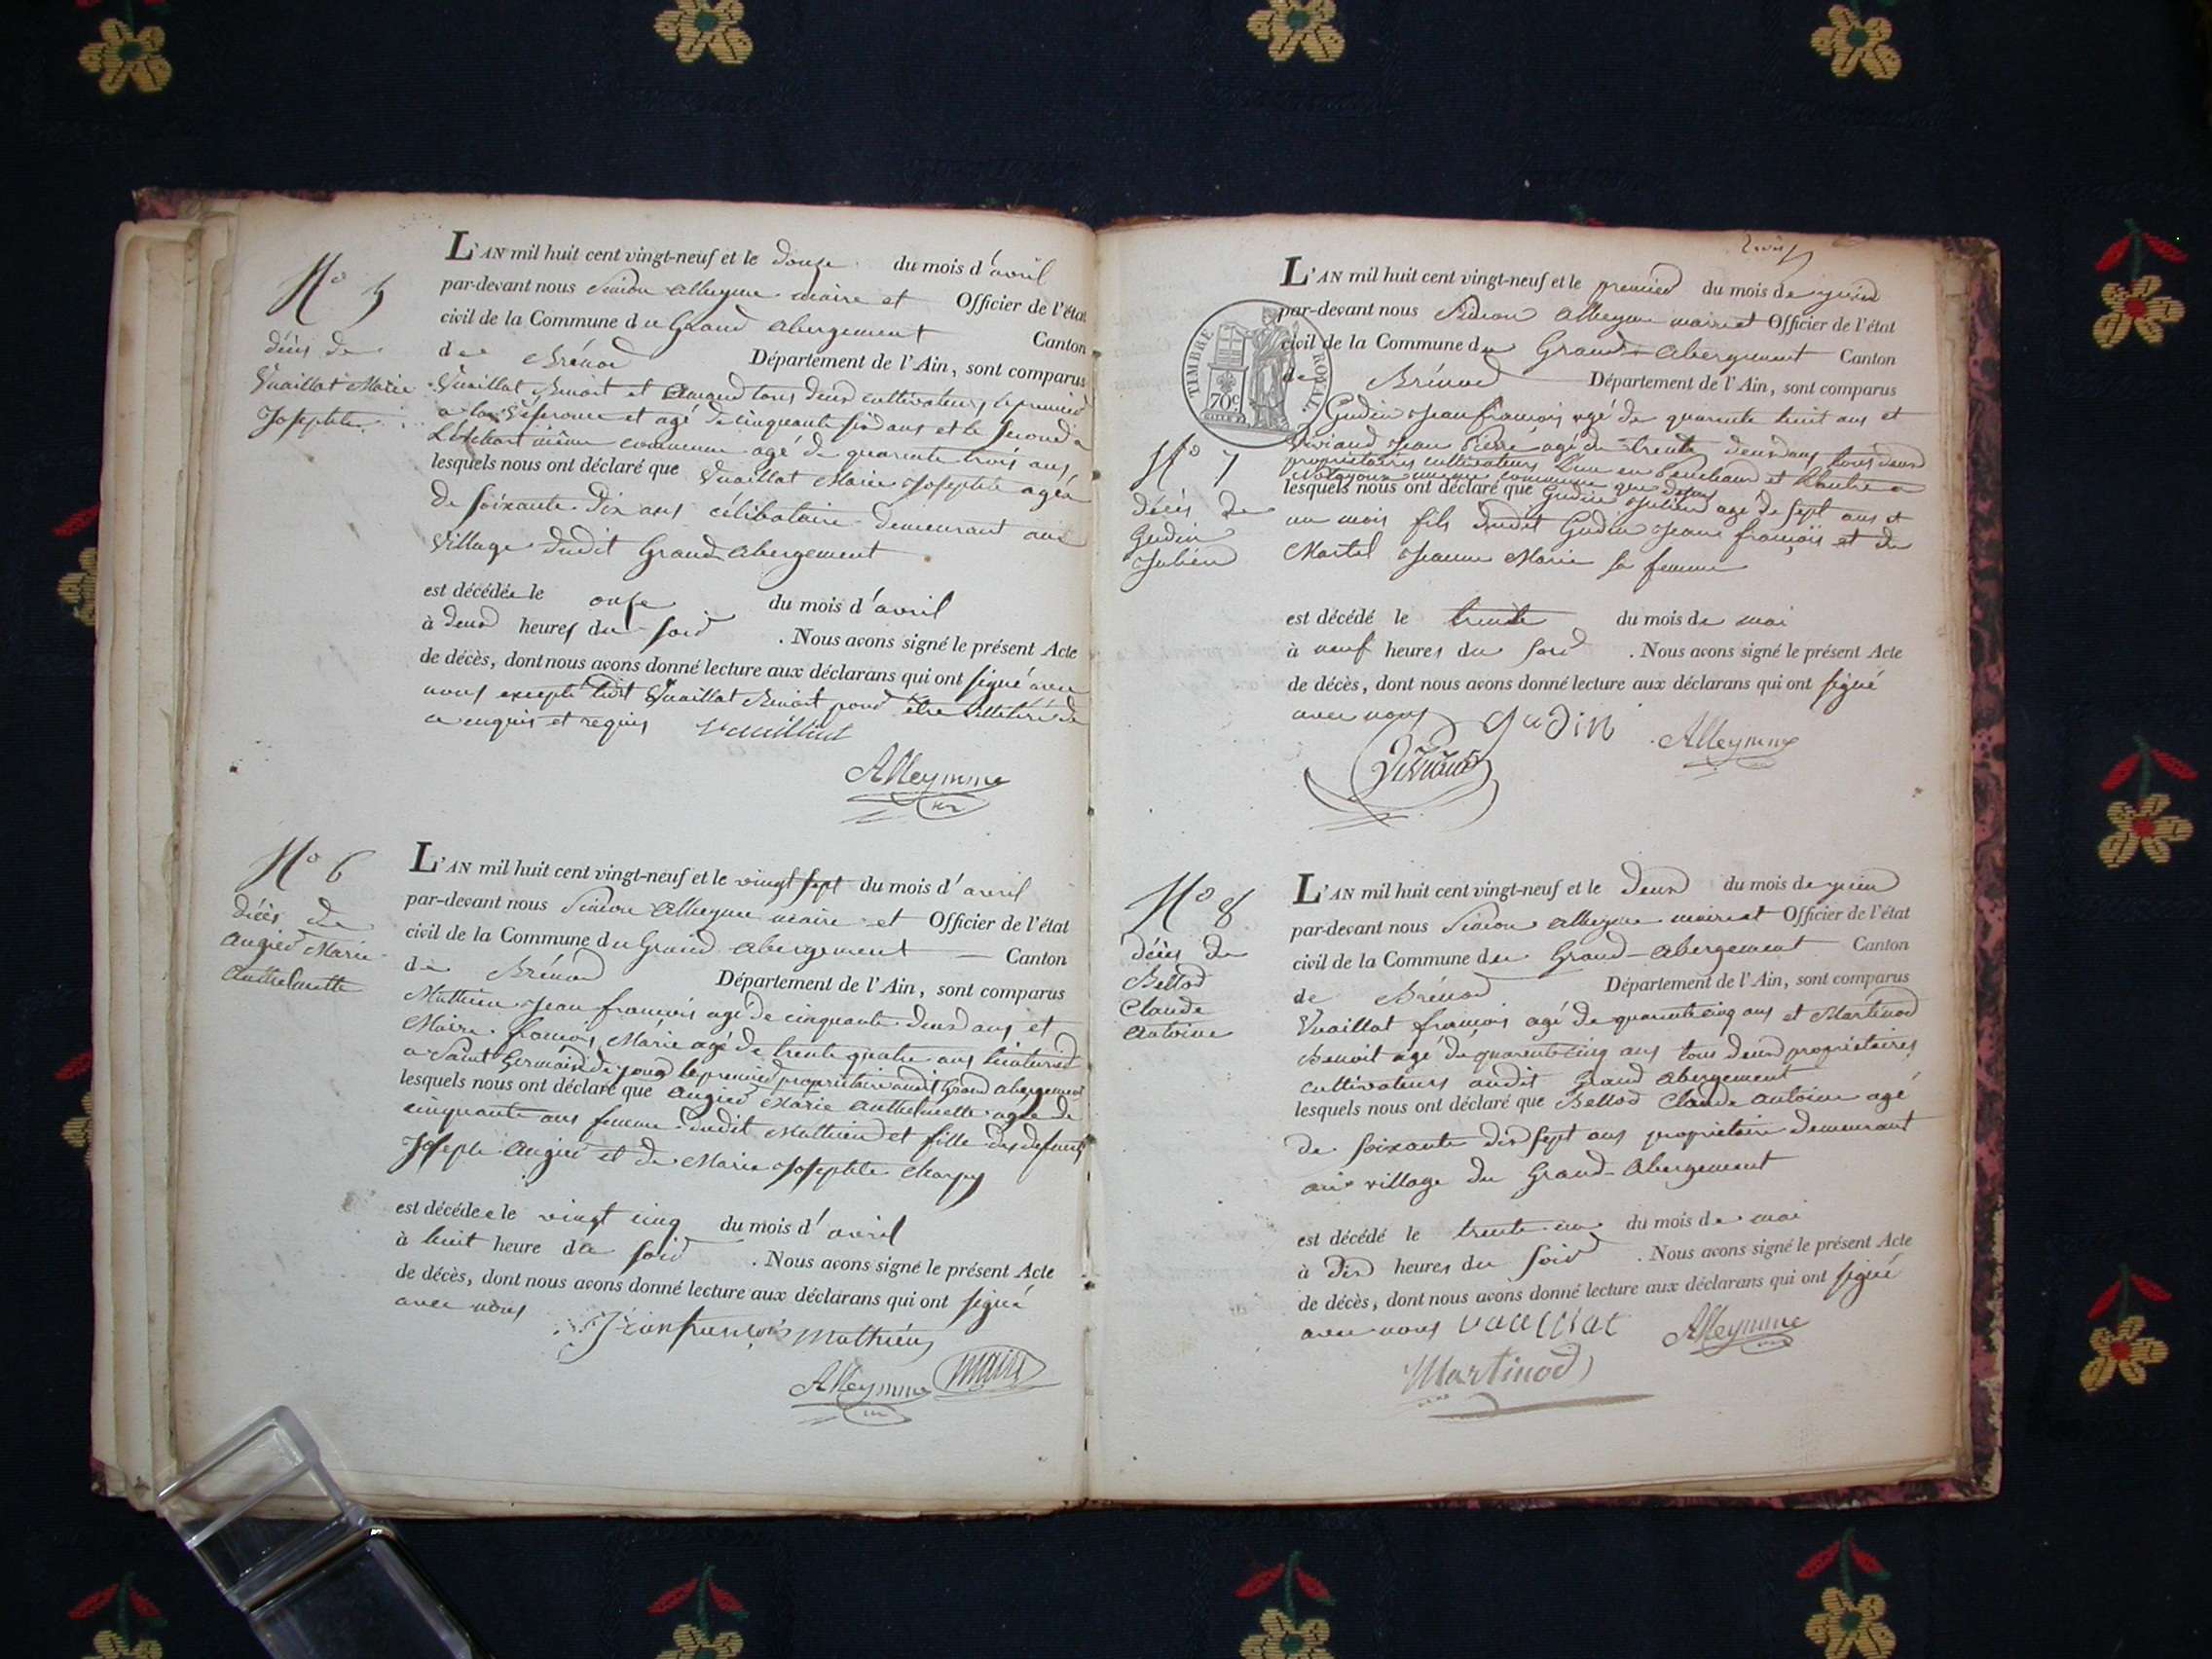 N° 5
décès de
Vuaillat Marie
Josephte
L'AN mil huit cent vingt-neuf et le douze du mois d'avril
par-devant nous Simon Alleyme maire et Officier de l'état
civil de la Commune du Grand abergement Canton
de Brénod Département de l'Ain, sont comparus
Vuaillat Benoit et tous deux cultivateurs, le premier
a et agé de cinquante six ans et le second a
même commune agé de quarante trois ans,
lesquels nous ont déclaré que Vuaillat Marie Josephte agée
de soixante dix ans célibataire demeurant au
village dudit Grand abergement
est décédée le onze du mois d'avril
à deux heures du soir . Nous avons signé le présent Acte
de décès, dont nous avons donné lecture aux déclarans qui ont signé avec
nous excepté ledit Vuaillat Benoit pour être illitéré de
ce enquis et requis Vuaillat
Alleymme
N° 6
décès de
Augier Marie
Anthelmette
L'AN mil huit cent vingt-neuf et le vingt sept du mois d'avril
par-devant nous Simon Alleyme maire et Officier de l'état
civil de la Commune du Grand abergement Canton
de Brénod Département de l'Ain, sont comparus
Mathieu Jean françois agé de cinquante deux ans et
Maire françois Marie agé de trente quatre ans
a Saint Germain de joux le premier propriétaire audit Grand abergement
lesquels nous ont déclaré que Augier Marie Anthelmette agée de
cinquante ans femme dudit Mathieu et fille des defunts
Joseph Augier et de Marie Josephte Charpy
est décédée le vingt cinq du mois d'avril
à huit heure du soir . Nous avons signé le présent Acte
de décès, dont nous avons donné lecture aux déclarans qui ont signé
avec nous Jéanfrançois mathieu
Alleymme maire
trois
TIMBRE ROYAL.
70c
N° 7
décès de
Gudin
Julien
L'AN mil huit cent vingt-neuf et le premier du mois de juin
par-devant nous Simon Alleyme maire et Officier de l'état
civil de la Commune du Grand-abergement Canton
de Brénod Département de l'Ain, sont comparus
Gudin Jean françois agé de quarante huit ans et
Jean Pierre agé de trente deux ans tous deux
propriétaires cultivateurs l'un en et l'autre a
même commune que dessus
lesquels nous ont déclaré que Gudin Julien agé de sept ans et
un mois fils dudit Gudin Jean françois et de
Martel Jeanne Marie sa femme
est décédé le trente du mois de mai
à neuf heures du soir . Nous avons signé le présent Acte
de décès, dont nous avons donné lecture aux déclarans qui ont signé
avec nous gudin Alleymme
N° 8
décès de
Bellod
Claude
Antoine
L'AN mil huit cent vingt-neuf et le deux du mois de juin
par-devant nous Simon Alleyme maire et Officier de l'état
civil de la Commune du Grand-abergement Canton
de Brénod Département de l'Ain, sont comparus
Vuaillat françois agé de quarante cinq ans et Martinod
Benoit agé de quarante cinq ans tous deux propriétaires
cultivateurs audit Grand abergement
lesquels nous ont déclaré que Bellod Claude Antoine agé
de soixante dix sept ans propriétaire demeurant
au village du Grand-abergement
est décédé le trente un du mois de mai
à dix heures du soir . Nous avons signé le présent Acte
de décès, dont nous avons donné lecture aux déclarans qui ont signé
avec nous vuailliat Alleymme
Martinod